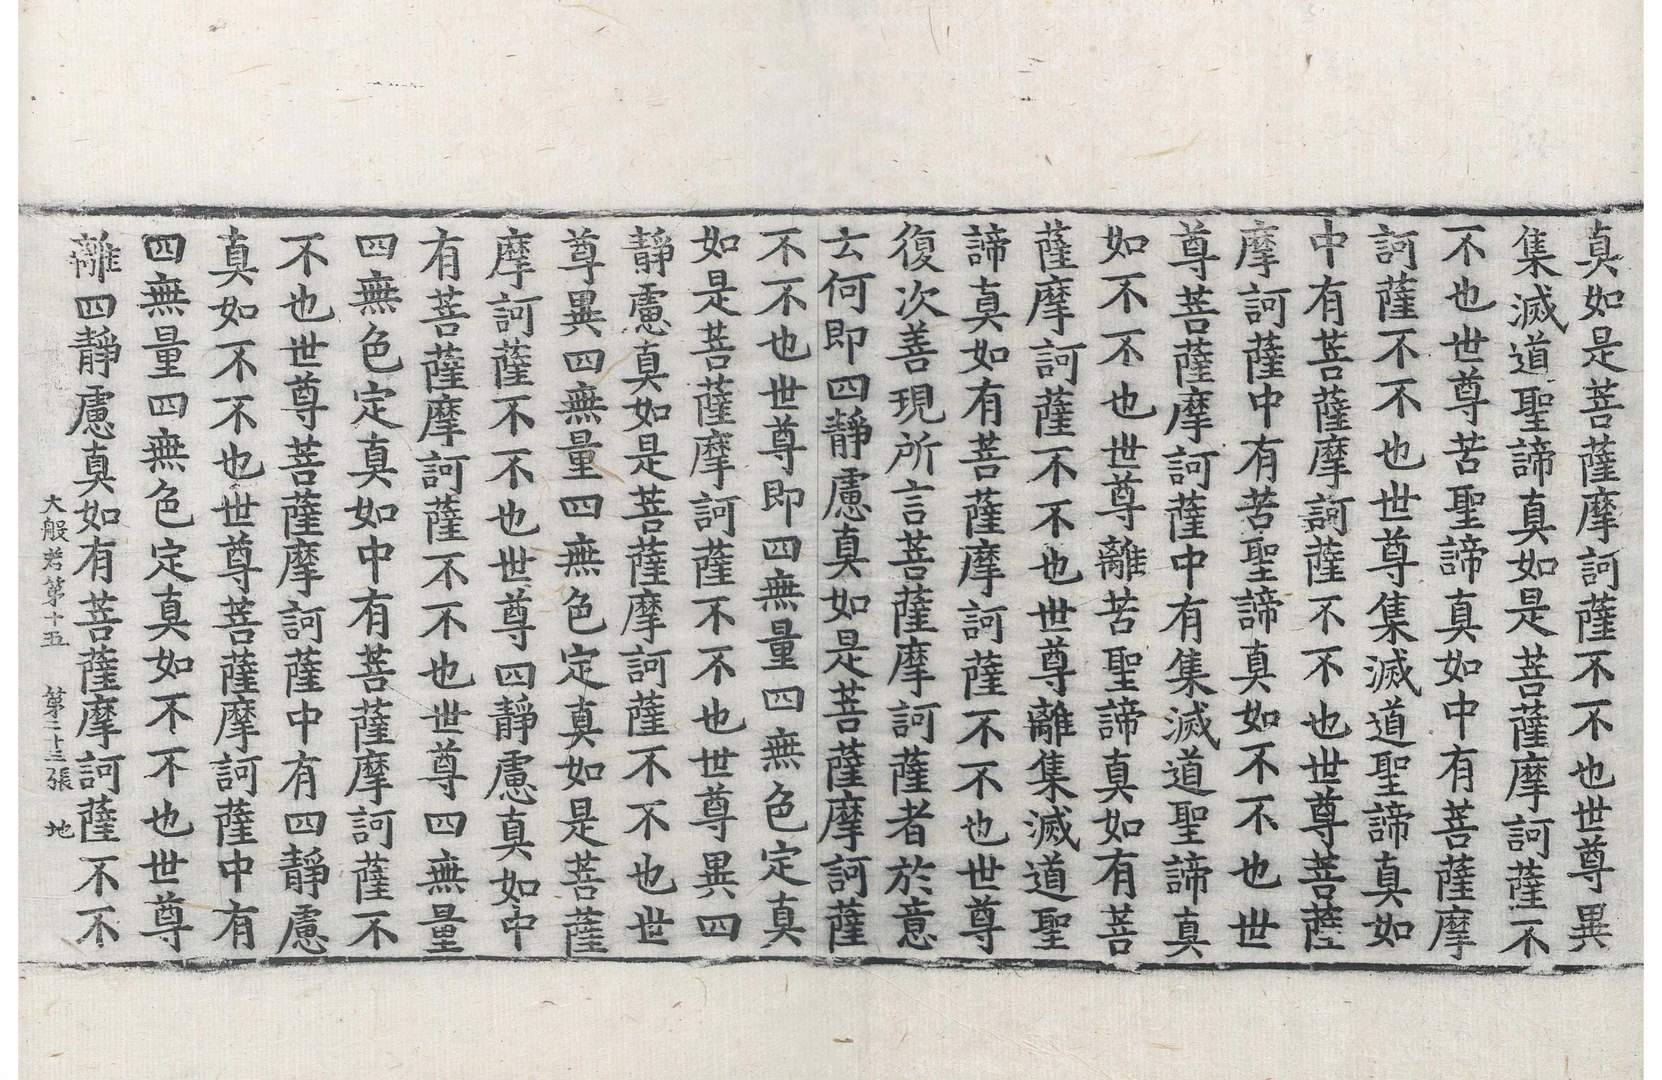 真如是菩薩摩訶薩不不也世尊異
集滅道聖諦真如是菩薩摩訶薩不
不也世尊苦聖諦真如中有菩薩摩
訶薩不不也世尊集滅道聖諦真如
中有菩薩摩訶薩不不也世尊菩薩
摩訶薩中有苦聖諦真如不不也世
尊菩薩摩訶薩中有集滅道聖諦真
如不不也世尊離苦聖諦真如有菩
薩摩訶薩不不也世尊離集滅道聖
諦真如有菩薩摩訶薩不不也世尊
復次善現所言菩薩摩訶薩者於意
云何即四靜慮真如是菩薩摩訶薩
不不也世尊即四無量四無色定真
如是菩薩摩訶薩不不也世尊異四
靜慮真如是菩薩摩訶薩不不也世
尊異四無量四無色定真如是菩薩
摩訶薩不不也世尊四靜慮真如中
有菩薩摩訶薩不不也世尊四無量
四無色定真如中有菩薩摩訶薩不
不也世尊菩薩摩訶薩中有四靜慮
真如不不也世尊菩薩摩訶薩中有
四無量四無色定真如不不也世尊
離四靜慮真如有菩薩摩訶薩不不
大般若第十五 第二十三張 地